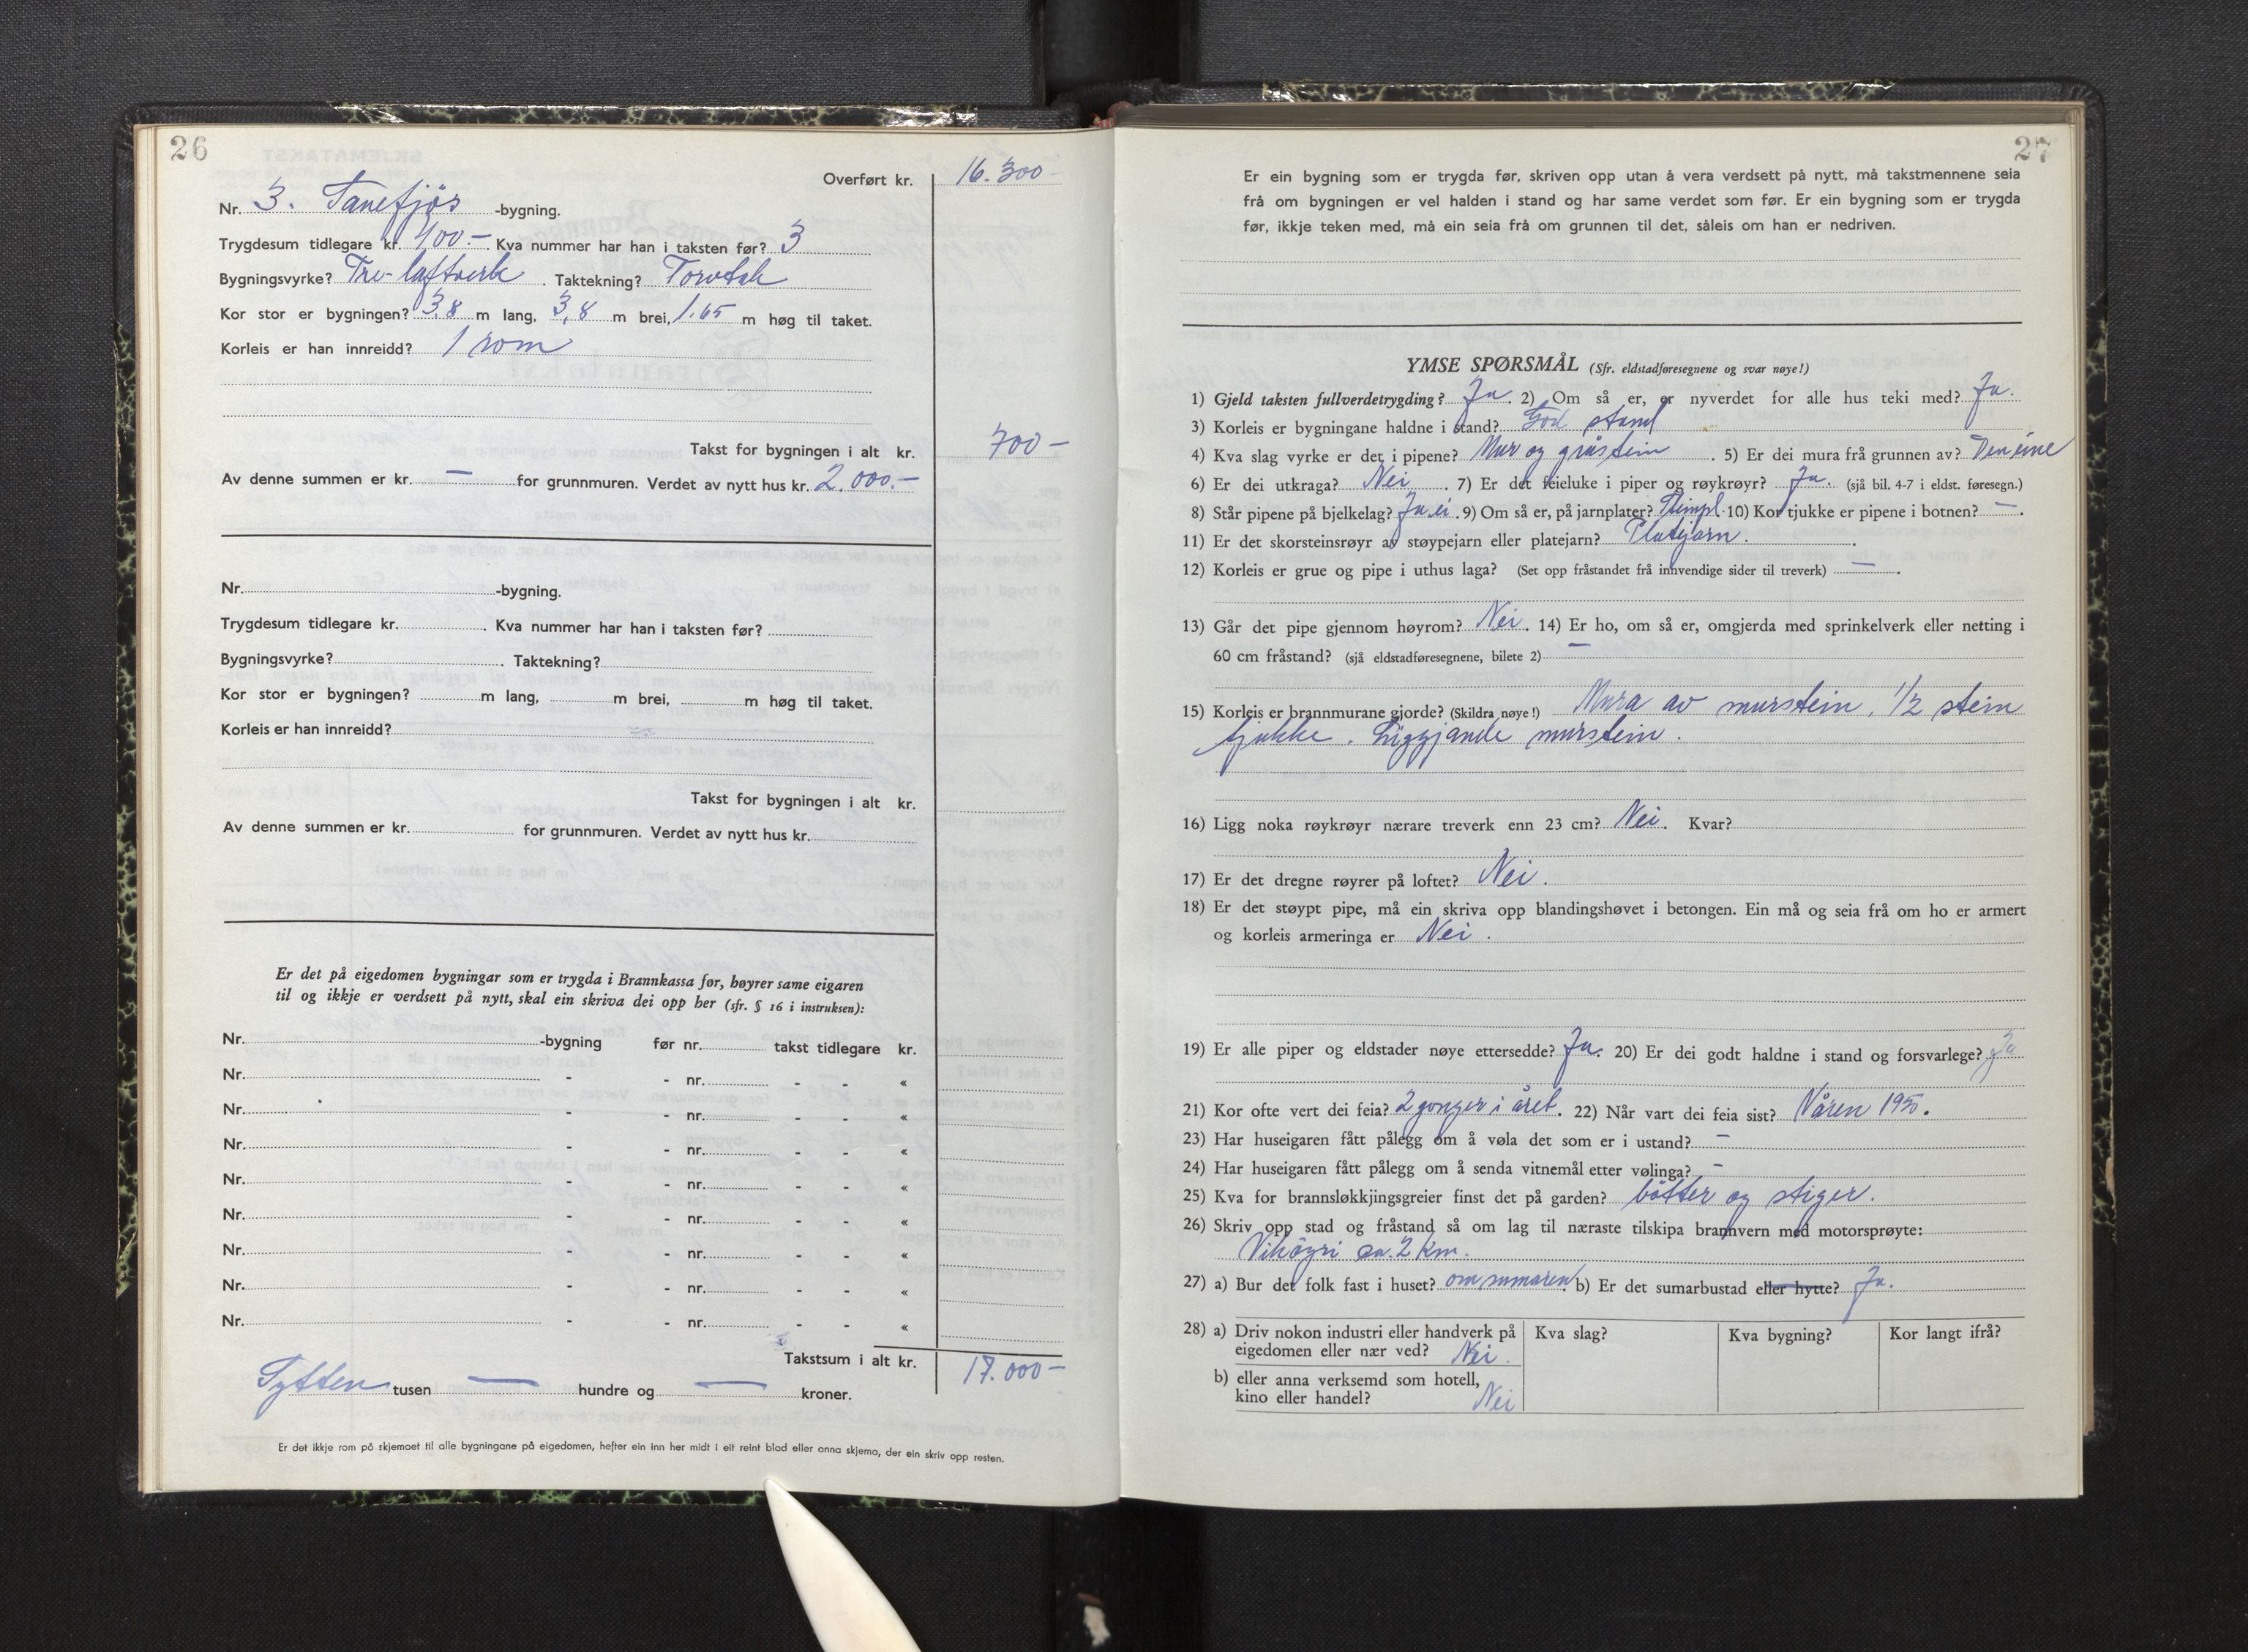 26
Overført kr. 16.300-
Nr. 3. Sauefjøs -bygning.
Trygdesum tidlegare kr. 400.- Kva nummer har han i taksten før? 3
Bygningsvyrke? Tre-lafteverk . Taktekning? Torvtak
Kor stor er bygningen? 3,8 m lang, 3,8 m brei, 1.65 m høg til taket.
Korleis er han innreidd? 1 rom
Takst for bygningen i alt kr. 700-
Av denne summen er kr. — for grunnmuren. Verdet av nytt hus kr. 2.000.-
Nr. -bygning.
Trygdesum tidlegare kr. . Kva nummer har han i taksten før?
Bygningsvyrke? . Taktekning?
Kor stor er bygningen? m lang, m brei, m høg til taket.
Korleis er han innreidd?
Takst for bygningen i alt kr.
Av denne summen er kr. for grunnmuren. Verdet av nytt hus kr.
Er det på eigedomen bygningar som er trygda i Brannkassa før, høyrer same eigaren
til og ikkje er verdsett på nytt, skal ein skriva dei opp her (sfr. § 16 i instruksen):
Nr. -bygning før nr. takst tidlegare kr.
Nr. - - nr. - - «
Nr. - - nr. - - «
Nr. - - nr. - - «
Nr. - - nr. - - «
Nr. - - nr. - - «
Nr. - - nr. - - «
Nr. - - nr. - - «
Nr. - - nr. - - «
Takstsum i alt kr. 17.000-
Sytten tusen — hundre og — kroner.
Er det ikkje rom på skjemaet til alle bygningane på eigedomen, hefter ein inn her midt i eit reint blad eller anna skjema, der ein skriv opp resten.
27
Er ein bygning som er trygda før, skriven opp utan å vera verdsett på nytt, må takstmennene seia
frå om bygningen er vel halden i stand og har same verdet som før. Er ein bygning som er trygda
før, ikkje teken med, må ein seia frå om grunnen til det, såleis om han er nedriven.
YMSE SPØRSMÅL (Sfr. eldstadføresegnene og svar nøye!)
1) Gjeld taksten fullverdetrygding? Ja. 2) Om så er, er nyverdet for alle hus teki med? Ja.
3) Korleis er bygningane haldne i stand? God stand
4) Kva slag vyrke er det i pipene? Mur og gråstein . 5) Er dei mura frå grunnen av? Den eine
6) Er dei utkraga? Nei . 7) Er det feieluke i piper og røykrøyr? Ja. (sjå bil. 4-7 i eldst. føresegn.)
8) Står pipene på bjelkelag? Ja ei . 9) Om så er, på jarnplater? Steinpl. 10) Kor tjukke er pipene i botnen? — .
11) Er det skorsteinsrøyr av støypejarn eller platejarn? Platejarn. .
12) Korleis er grue og pipe i uthus laga? (Set opp fråstandet frå innvendige sider til treverk) — .
13) Går det pipe gjennom høyrom? Nei . 14) Er ho, om så er, omgjerda med sprinkelverk eller netting i
60 cm fråstand? (sjå eldstadføresegnene, bilete 2) —
15) Korleis er brannmurane gjorde? (Skildra nøye!) Mura av murstein, 1/2 stein
tjukke. Liggjande murstein.
16) Ligg noka røykrøyr nærare treverk enn 23 cm? Nei. Kvar?
17) Er det dregne røyrer på loftet? Nei.
18) Er det støypt pipe, må ein skriva opp blandingshøvet i betongen. Ein må og seia frå om ho er armert
og korleis armeringa er Nei.
19) Er alle piper og eldstader nøye ettersedde? Ja. 20) Er dei godt haldne i stand og forsvarlege? Ja
21) Kor ofte vert dei feia? 2 gonger i året. 22) Når vart dei feia sist? Våren 1950.
23) Har huseigaren fått pålegg om å vøla det som er i ustand? —
24) Har huseigaren fått pålegg om å senda vitnemål etter vølinga? —
25) Kva for brannsløkkjingsgreier finst det på garden? bøtter og stiger.
26) Skriv opp stad og fråstand så om lag til næraste tilskipa brannvern med motorsprøyte:
Vikøyri ca. 2 km.
27) a) Bur det folk fast i huset? om sumaren. b) Er det sumarbustad eller hytte? Ja.
28) a) Driv nokon industri eller handverk på eigedomen eller nær ved? Nei. Kva slag? Kva bygning? Kor langt ifrå?
b) eller anna verksemd som hotell, kino eller handel? Nei